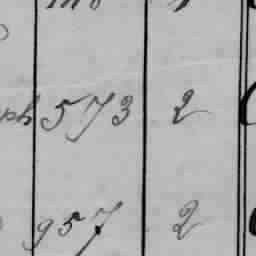 ph 573 2
957 2